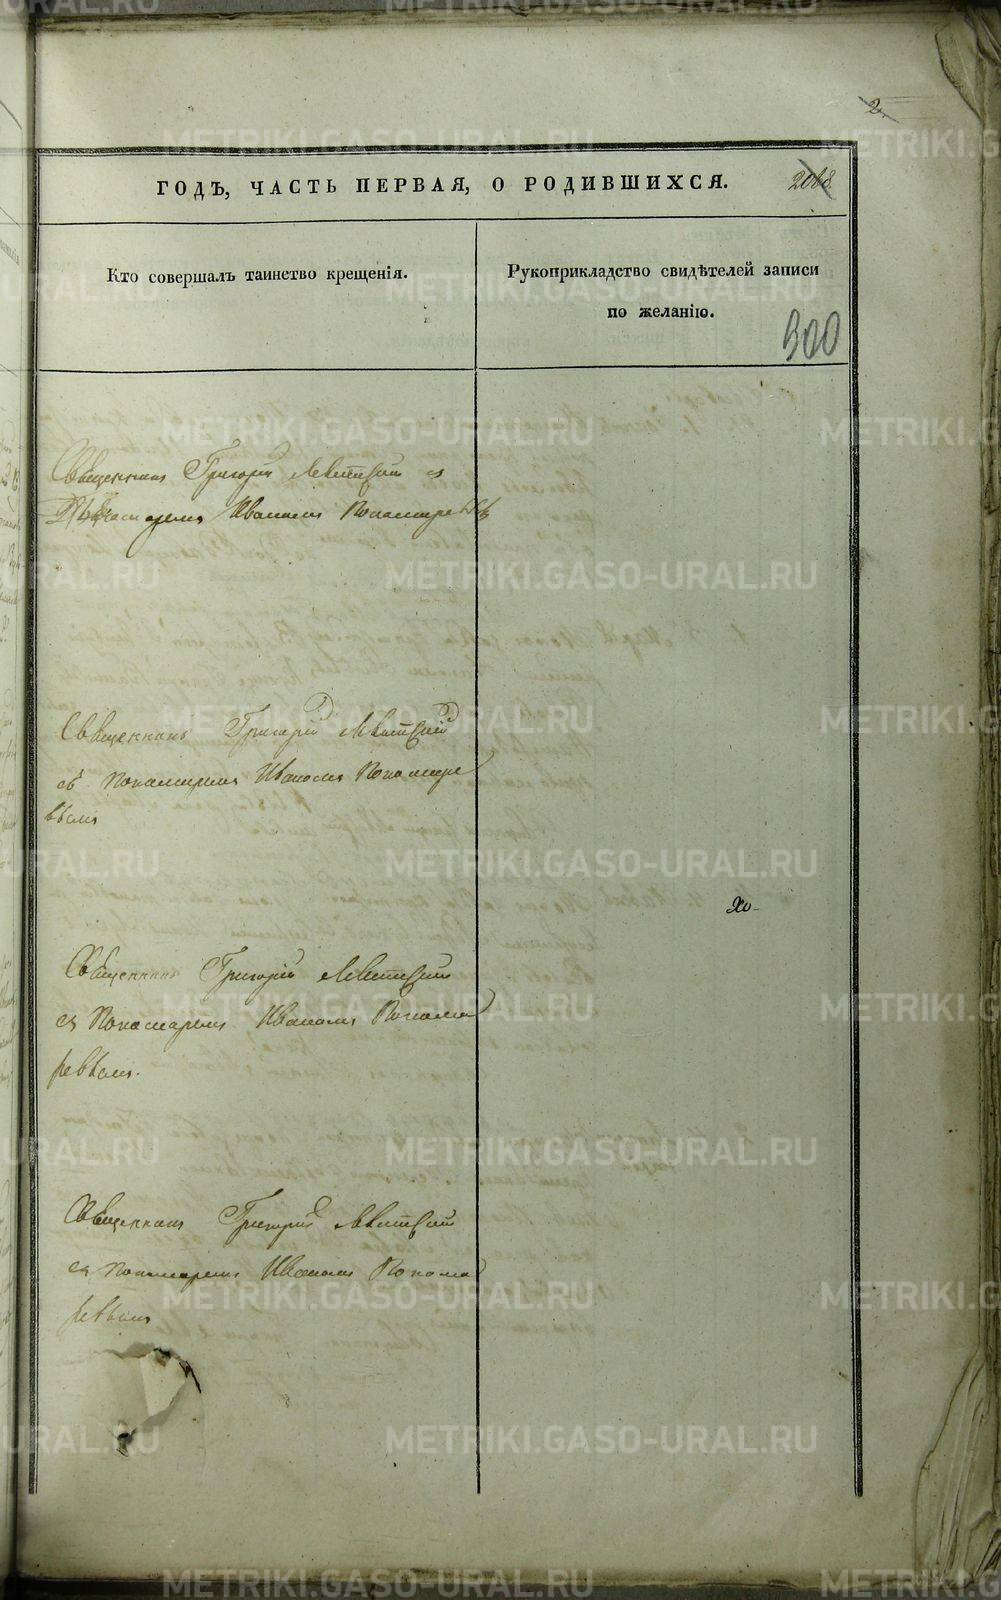 2.
ГОДЪ, ЧАСТЬ ПЕРВАЯ, О РОДИВШИХСЯ.
Кто совершалъ таинство крещенія.
Рукоприкладство свидѣтелей записи
по желанію.
300
Священникъ Григорій Левитскій съ
Иваномъ Пономаревымъ
Священникъ Григорій Левитскій
съ Пономаремъ Иваномъ Пономаре
вымъ
Священникъ Григорій Левитскій
съ Пономаремъ Иваномъ Понома
ревымъ.
Священникъ Григорій Левитскій
съ Пономаремъ Иваномъ Понома
ревымъ
METRIKI.GASO-URAL.RU